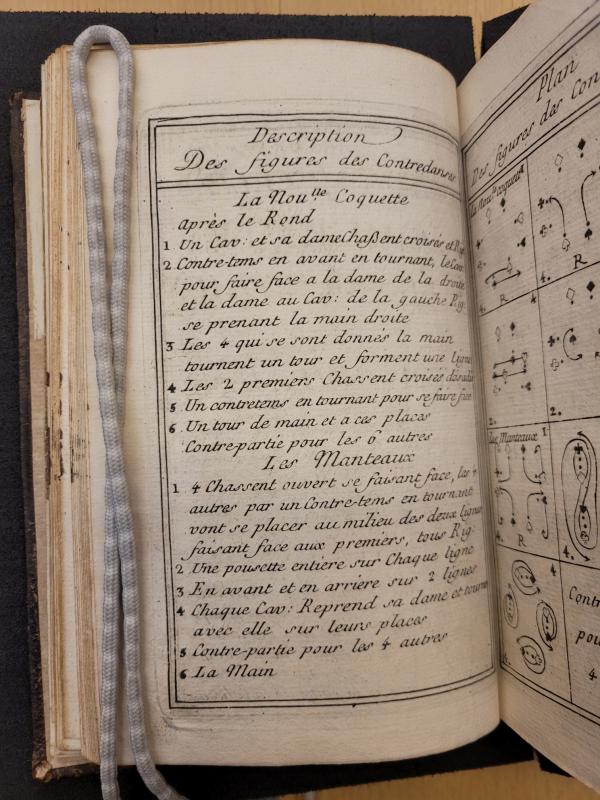 Description
Des figures des Contredanses
La Nou.lle Coquette
après le Rond
1 Un Cav: et sa dame Chaßent croisés et Rig
2 Contre-tems en avant en tournant, le Cav:
pour faire face a la dame de la droite
et la dame au Cav: de la gauche Rig.
se prenant la main droite
3 Les 4 qui se sont donnés la main
tournent un tour et forment une ligne
4 Les 2 premiers Chassent croisés
5 Un contretems en tournant pour se faire face
6 Un tour de main et a ces places
Contre-partie pour les 6 autres
Les Manteaux
1 4 Chassent ouvert se faisant face, les 4
autres par un Contre-tems en tournant
vont se placer au milieu des deux lignes
faisant face aux premiers, tous Rig.
2 Une pousette entiere sur Chaque ligne
3 En avant et en arriere sur 2 lignes
4 Chaque Cav: Reprend sa dame et tourne
avec elle sur leurs places
5 Contre-partie pour les 4 autres
6 La Main
Plan
Des figures des Con
La Nou.lle Coquette
4. R
R
4
2.
2.
Les Manteaux 1
4. R
4.
4
Contr
pou
4